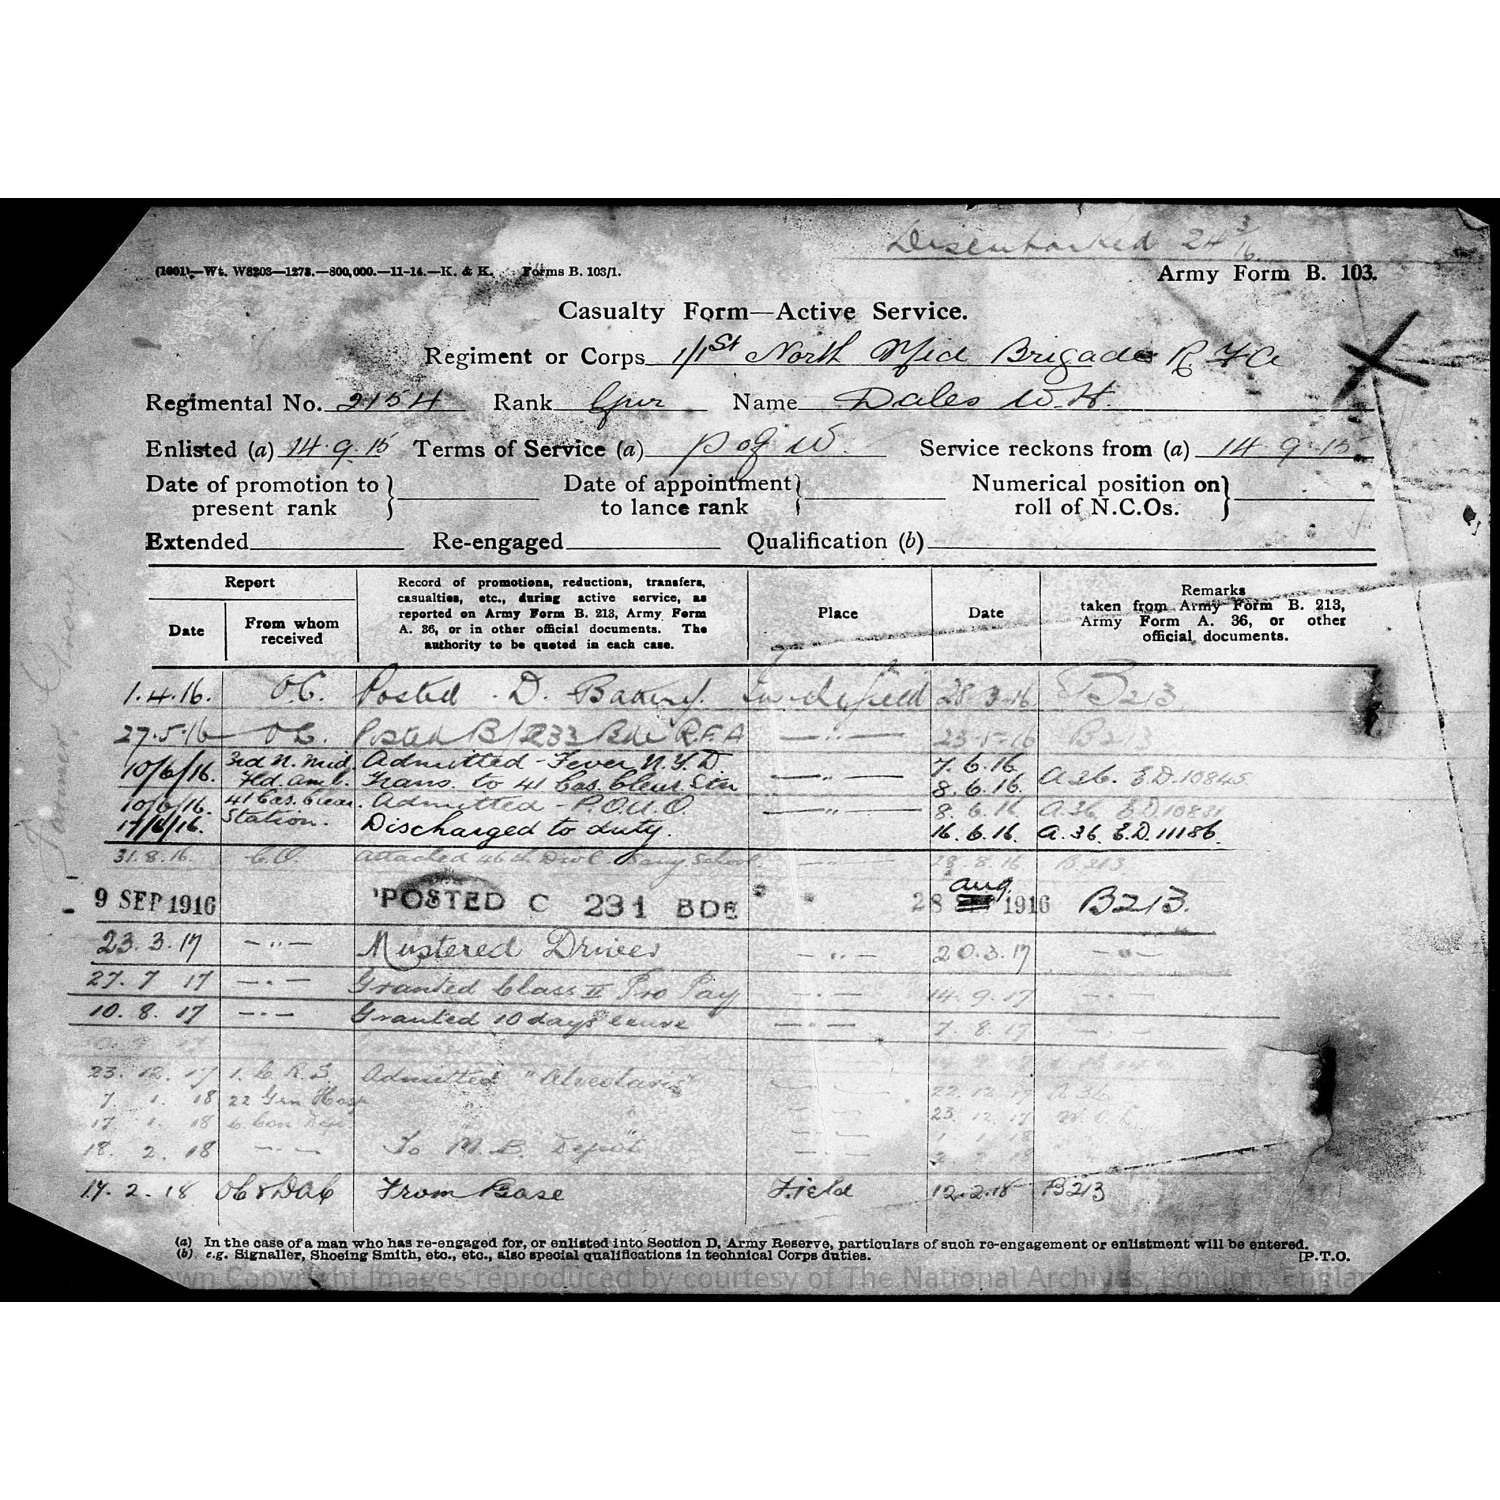 Disembarked 24 3/16
(1001)—Wt. W8203—1273.—800,000.—11-14.—K. & K. Forms B. 103/1.
Army Form B. 103.
Casualty Form—Active Service.
Regiment or Corps 1/1st North Mid Brigade R F A
Regimental No. 2154 Rank Gnr Name Dales W. H.
Enlisted (a) 14.9.15 Terms of Service (a) p of W. Service reckons from (a) 14.9.15
Date of promotion to present rank } Date of appointment to lance rank } Numerical position on roll of N.C.Os. }
Extended Re-engaged Qualification (b)
Report
Date
From whom received
Record of promotions, reductions, transfers,
casualties, etc., during active service, as
reported on Army Form B. 213, Army Form
A. 36, or in other official documents. The
authority to be quoted in each case.
Place
Date
Remarks
taken from Army Form B. 213,
Army Form A. 36, or other
official documents.
1.4.16. O.C. Posted D. Battery. In the field 28.3.16 B213
27.5.16 O.C. Posted B/233 Bde R.F.A — " — 23.5.16 B213
10/6/16. 3rd N. Mid. Fld. Amb. Admitted - Fever N.Y.D — " — 7.6.16
Trans. to 41 Cas. Clear. Stn 8.6.16. A36. E.D.10845
10/6/16. 41 Cas. Clear. Station. Admitted - P.O.U.O — " — 8.6.16 A36 E.D.10831
17/6/16. Discharged to duty. 16.6.16. A.36. E.D.11186
31.8.16. C.O. Attached 46th Div School — " — 28.8.16 B213
9 SEP 1916 POSTED C 231 BDE " " 28 aug 1916 B213.
23.3.17 — " — Mustered Driver — " — 20.3.17 — " —
27.7 17 — " — Granted Class II Pro Pay — " — 14.9.17 — " —
10.8.17 — " — Granted 10 days leave — " — 7.8.17 — " —
23.12.17 1. C.R.S Admitted 22.12.17 A36
7.1.18 22 Gen Hosp 23.12.17
17.1.18 C. Con Dep
18.2.18 — " — To M.B. Depot
14.2.18 From Base Field 12.2.18 B213
(a) In the case of a man who has re-engaged for, or enlisted into Section D, Army Reserve, particulars of such re-engagement or enlistment will be entered.
(b) e.g. Signaller, Shoeing Smith, etc., etc., also special qualifications in technical Corps duties. [P.T.O.
Copyright Images reproduced by courtesy of The National Archives, London, England